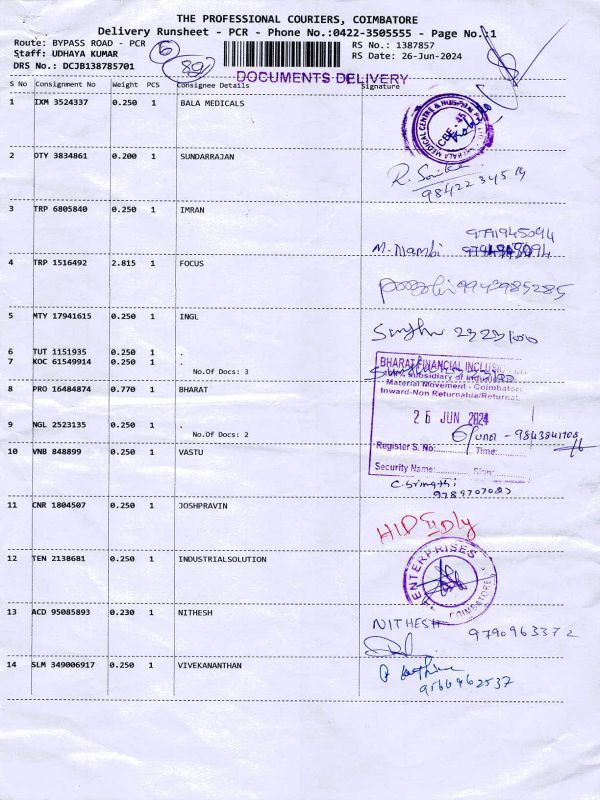 THE PROFESSIONAL COURIERS, COIMBATORE
Delivery Runsheet - PCR - Phone No.:0422-3505555 - Page No.:1
Route: BYPASS ROAD - PCR
RS No.: 1387857
Staff: UDHAYA KUMAR
RS Date: 26-Jun-2024
DRS No.: DCJB138785701
6
89
DOCUMENTS DELIVERY
S No Consignment No Weight PCS Consignee Details Signature
1 IXM 3524337 0.250 1 BALA MEDICALS
BALA MEDICAL CENTRE & HOSPITAL
CBE
2 DTY 3834861 0.200 1 SUNDARRAJAN
9842234514
3 TRP 6805840 0.250 1 IMRAN
9791945094
M. Nambi
4 TRP 1516492 2.815 1 FOCUS
9949985285
5 MTY 17941615 0.250 1 INGL
6 TUT 1151935 0.250 1 .
7 KOC 61549914 0.250 1 .
No.Of Docs: 3
BHARAT FINANCIAL INCLUSION
subsidiary of
Material Movement - Coimbatore
Inward-Non Returnable/Returnable
8 PRO 16484874 0.770 1 BHARAT
26 JUN 2024
9 NGL 2523135 0.250 1 .
No.Of Docs: 2
- 9843841708
Register S. No: Time:
10 VNB 848899 0.250 1 VASTU
Security Name: Sign:
C. Srimathi
9789707023
11 CNR 1804507 0.250 1 JOSHPRAVIN
12 TEN 2138681 0.250 1 INDUSTRIALSOLUTION
ENTERPRISES
COIMBATORE
13 ACD 95085893 0.230 1 NITHESH
NITHESH
9790963372
14 SLM 349006917 0.250 1 VIVEKANANTHAN
9566462537